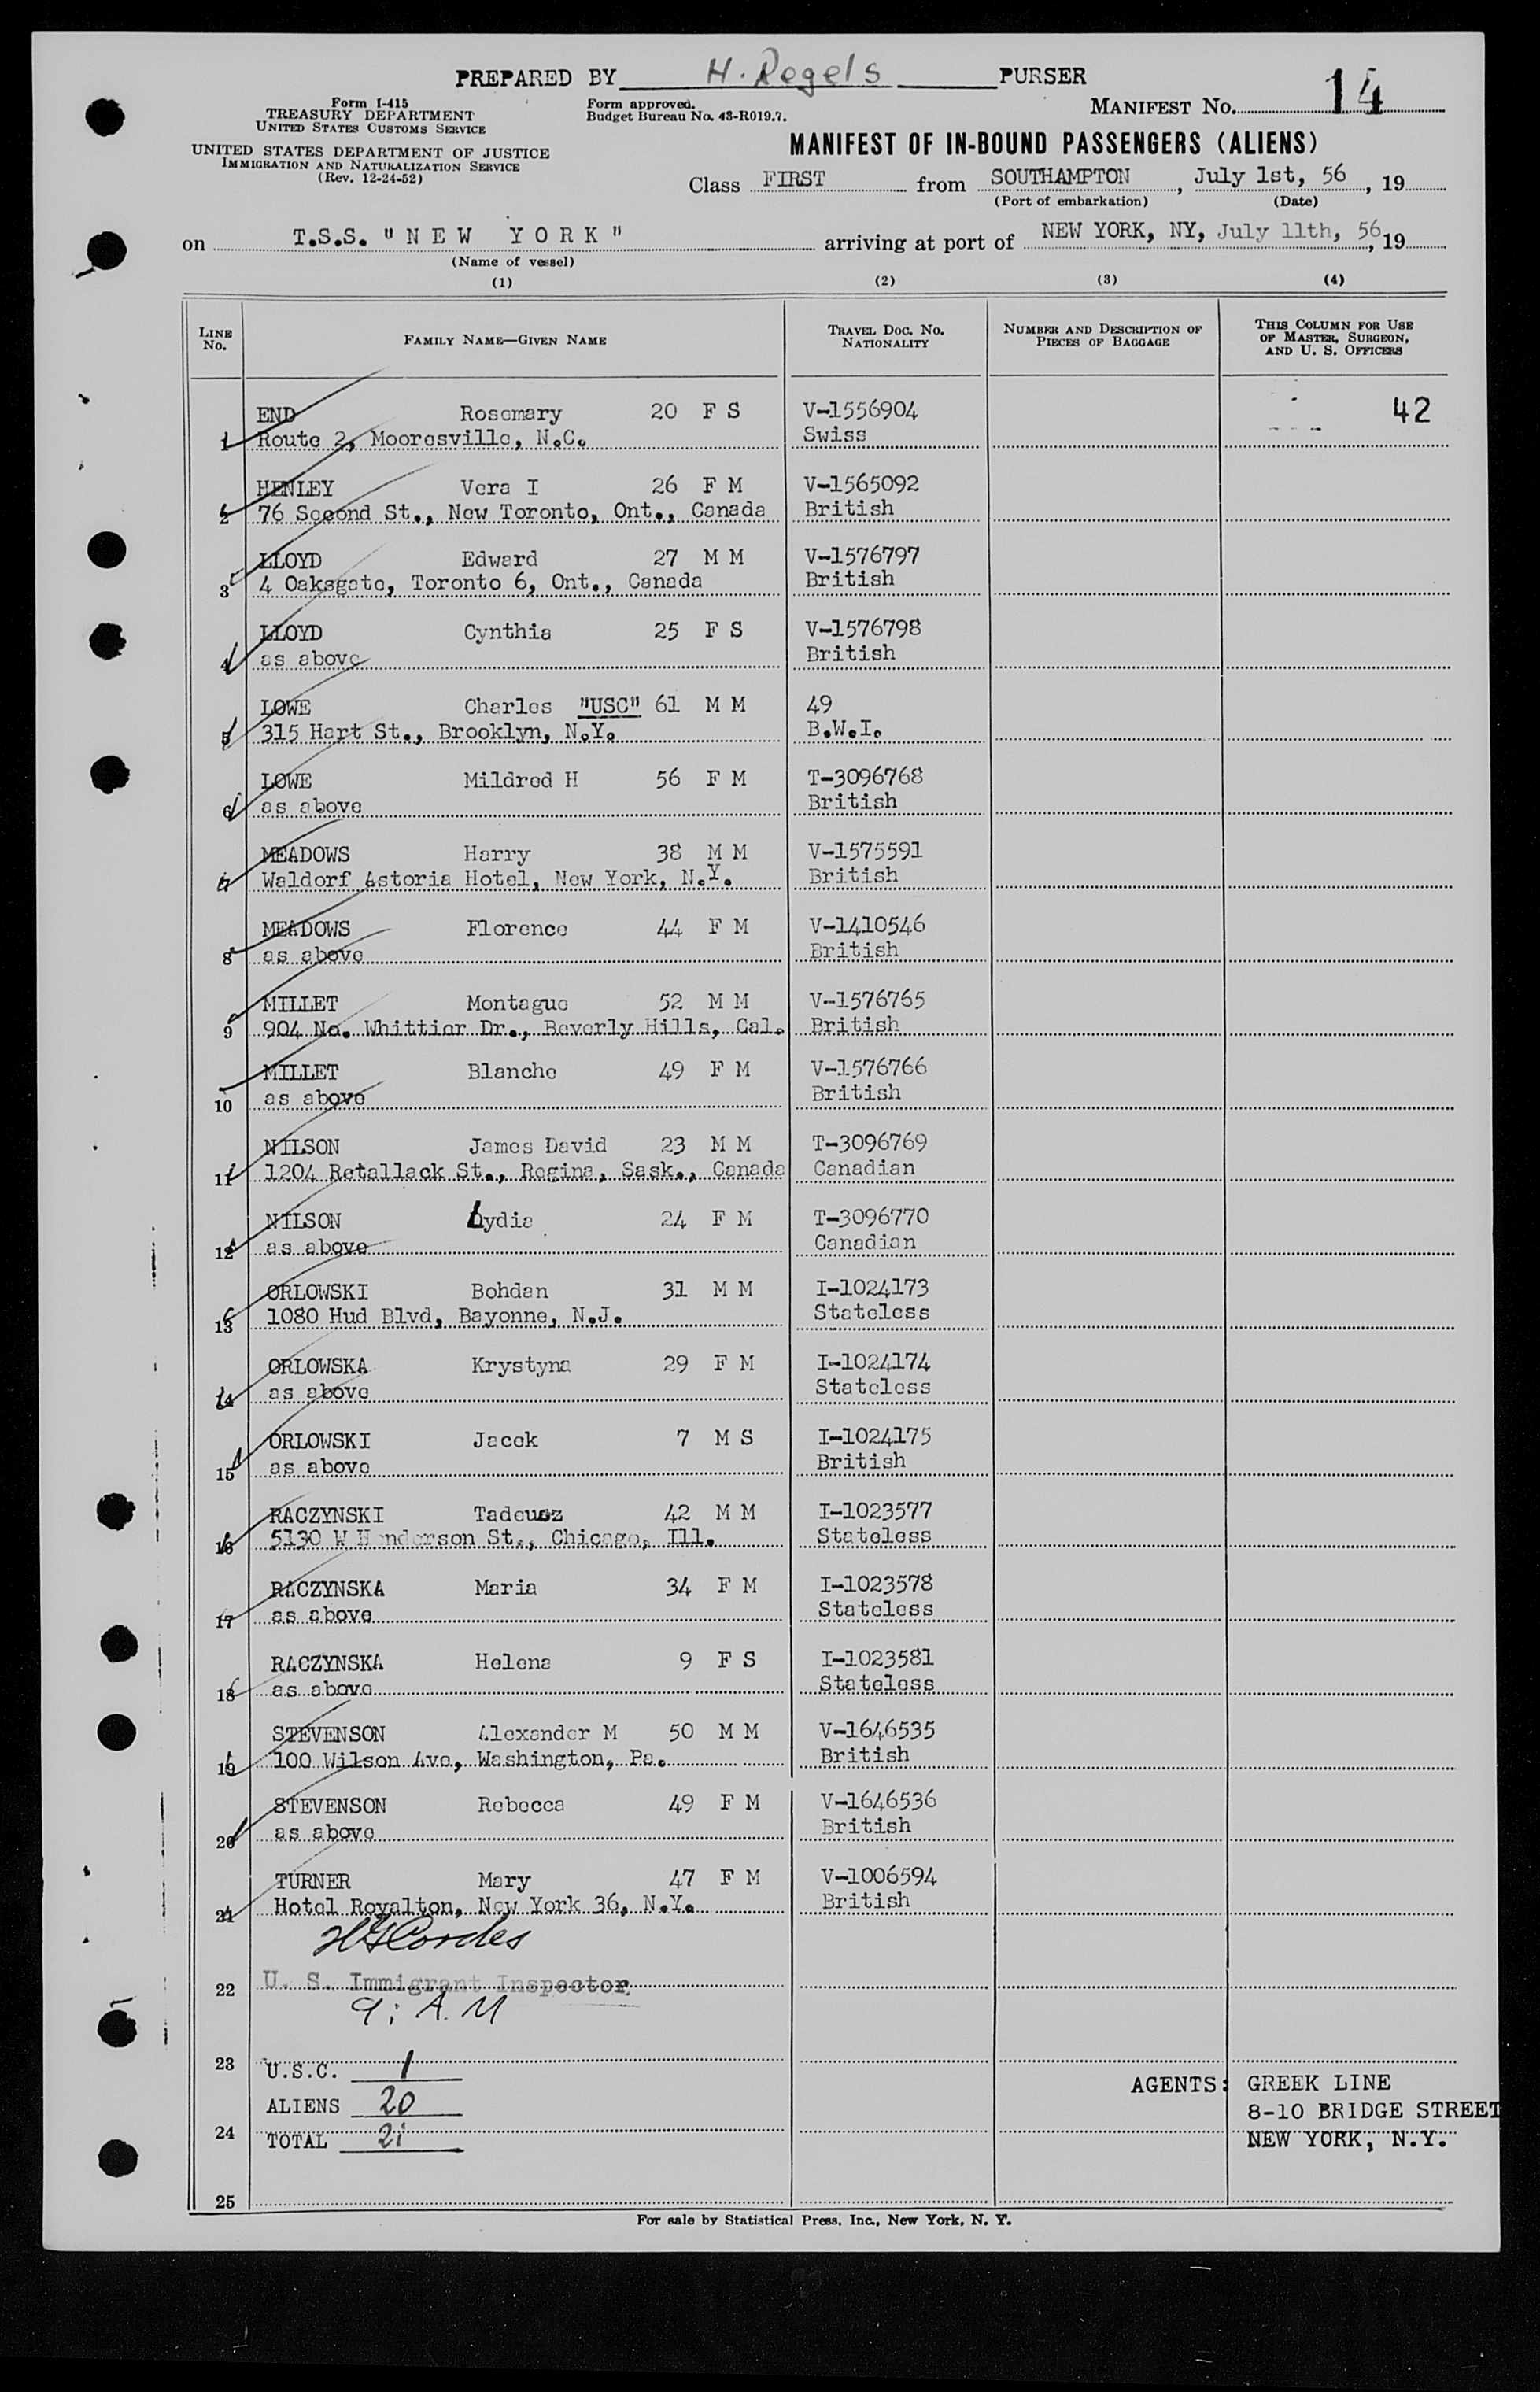 PREPARED BY H. Regels PURSER
Form I-415
TREASURY DEPARTMENT
UNITED STATES CUSTOMS SERVICE
Form approved.
Budget Bureau No. 43-R019.7.
MANIFEST No. 14
UNITED STATES DEPARTMENT OF JUSTICE
IMMIGRATION AND NATURALIZATION SERVICE
(Rev. 12-24-52)
MANIFEST OF IN-BOUND PASSENGERS (ALIENS)
Class FIRST from SOUTHAMPTON, July 1st, 56, 19
(Port of embarkation) (Date)
on T.S.S. "NEW YORK" arriving at port of NEW YORK, NY, July 11th, 56, 19
(Name of vessel)
(1) (2) (3) (4)
LINE No. FAMILY NAME—GIVEN NAME TRAVEL DOC. No. NATIONALITY NUMBER AND DESCRIPTION OF PIECES OF BAGGAGE THIS COLUMN FOR USE OF MASTER, SURGEON, AND U. S. OFFICERS
END Rosemary 20 F S V-1556904 42
1 Route 2, Mooresville, N.C. Swiss
HENLEY Vera I 26 F M V-1565092
2 76 Second St., New Toronto, Ont., Canada British
LLOYD Edward 27 M M V-1576797
3 4 Oaksgate, Toronto 6, Ont., Canada British
LLOYD Cynthia 25 F S V-1576798
4 as above British
LOWE Charles "USC" 61 M M 49
5 315 Hart St., Brooklyn, N.Y. B.W.I.
LOWE Mildred H 56 F M T-3096768
6 as above British
MEADOWS Harry 38 M M V-1575591
7 Waldorf Astoria Hotel, New York, N.Y. British
MEADOWS Florence 44 F M V-1410546
8 as above British
MILLET Montague 52 M M V-1576765
9 904 No. Whittier Dr., Beverly Hills, Cal. British
MILLET Blanche 49 F M V-1576766
10 as above British
NILSON James David 23 M M T-3096769
11 1204 Retallack St., Regina, Sask., Canada Canadian
NILSON Lydia 24 F M T-3096770
12 as above Canadian
ORLOWSKI Bohdan 31 M M I-1024173
13 1080 Hud Blvd, Bayonne, N.J. Stateless
ORLOWSKA Krystyna 29 F M I-1024174
14 as above Stateless
ORLOWSKI Jacek 7 M S I-1024175
15 as above British
RACZYNSKI Tadeusz 42 M M I-1023577
16 5130 W Henderson St., Chicago, Ill. Stateless
RACZYNSKA Maria 34 F M I-1023578
17 as above Stateless
RACZYNSKA Helena 9 F S I-1023581
18 as above Stateless
STEVENSON Alexander M 50 M M V-1646535
19 100 Wilson Ave, Washington, Pa. British
STEVENSON Rebecca 49 F M V-1646536
20 as above British
TURNER Mary 47 F M V-1006594
21 Hotel Royalton, New York 36, N.Y. British
Cordes
22 U. S. Immigrant Inspector
A.M
23 U.S.C. 1
AGENTS: GREEK LINE
ALIENS 20
8-10 BRIDGE STREET
24 TOTAL 21
NEW YORK, N.Y.
25
For sale by Statistical Press, Inc., New York, N. Y.